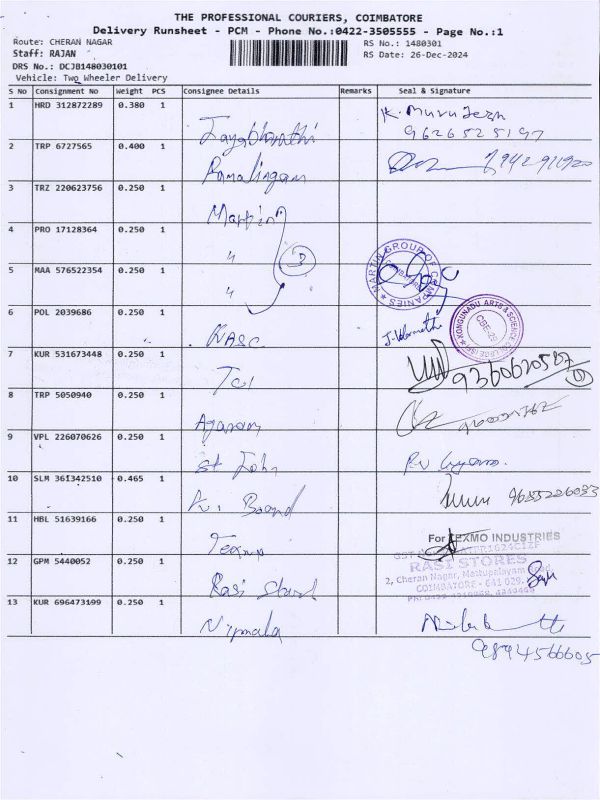 THE PROFESSIONAL COURIERS, COIMBATORE
Delivery Runsheet - PCM - Phone No.:0422-3505555 - Page No.:1
Route: CHERAN NAGAR RS No.: 1480301
Staff: RAJAN RS Date: 26-Dec-2024
DRS No.: DCJB148030101
Vehicle: Two Wheeler Delivery
S No Consignment No Weight PCS Consignee Details Remarks Seal & Signature
1 HRD 312872289 0.380 1 Jayabharathi K. Murugesan
9626528197
2 TRP 6727565 0.400 1 Ramalingam
3 TRZ 220623756 0.250 1 Martin
4 PRO 17128364 0.250 1 〃 3 MARTIN GROUP OF COMPANIES
5 MAA 576522354 0.250 1 〃
6 POL 2039686 0.250 1 KASC KONGUNADU ARTS & SCIENCE COLLEGE CBE-29
7 KUR 531673448 0.250 1 Tci
8 TRP 5050940 0.250 1 Agaram
9 VPL 226070626 0.250 1 St John
10 SLM 361342510 0.465 1 Board 9655226033
11 HBL 51639166 0.250 1 Texmo For TEXMO INDUSTRIES
12 GPM 5440052 0.250 1 Rasi RASI STORES
2, Cheran Nagar, Mettupalayam Road,
COIMBATORE - 641 029.
13 KUR 696473199 0.250 1 Nirmala
9894566605